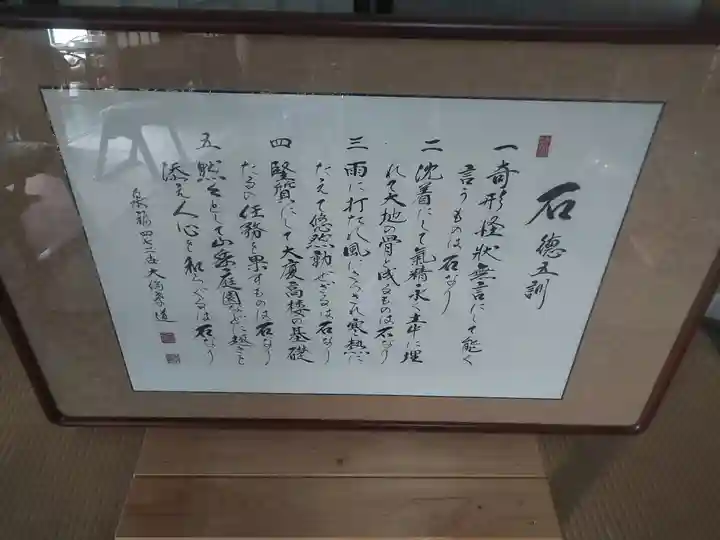 石徳五訓
一 奇形怪状無言にして能く
言うものは石なり
二 沈着にして氣精永く土中に埋
れて大地の骨と成るものは石なり
三 雨に打たれ風にさらされ寒熱に
たえて悠然動ぜざるは石なり
四 堅質にして大厦高楼の基礎
たるの任務を果すものは石なり
五 黙々として山岳庭園などに趣きを
添え人心を和らぐるは石なり